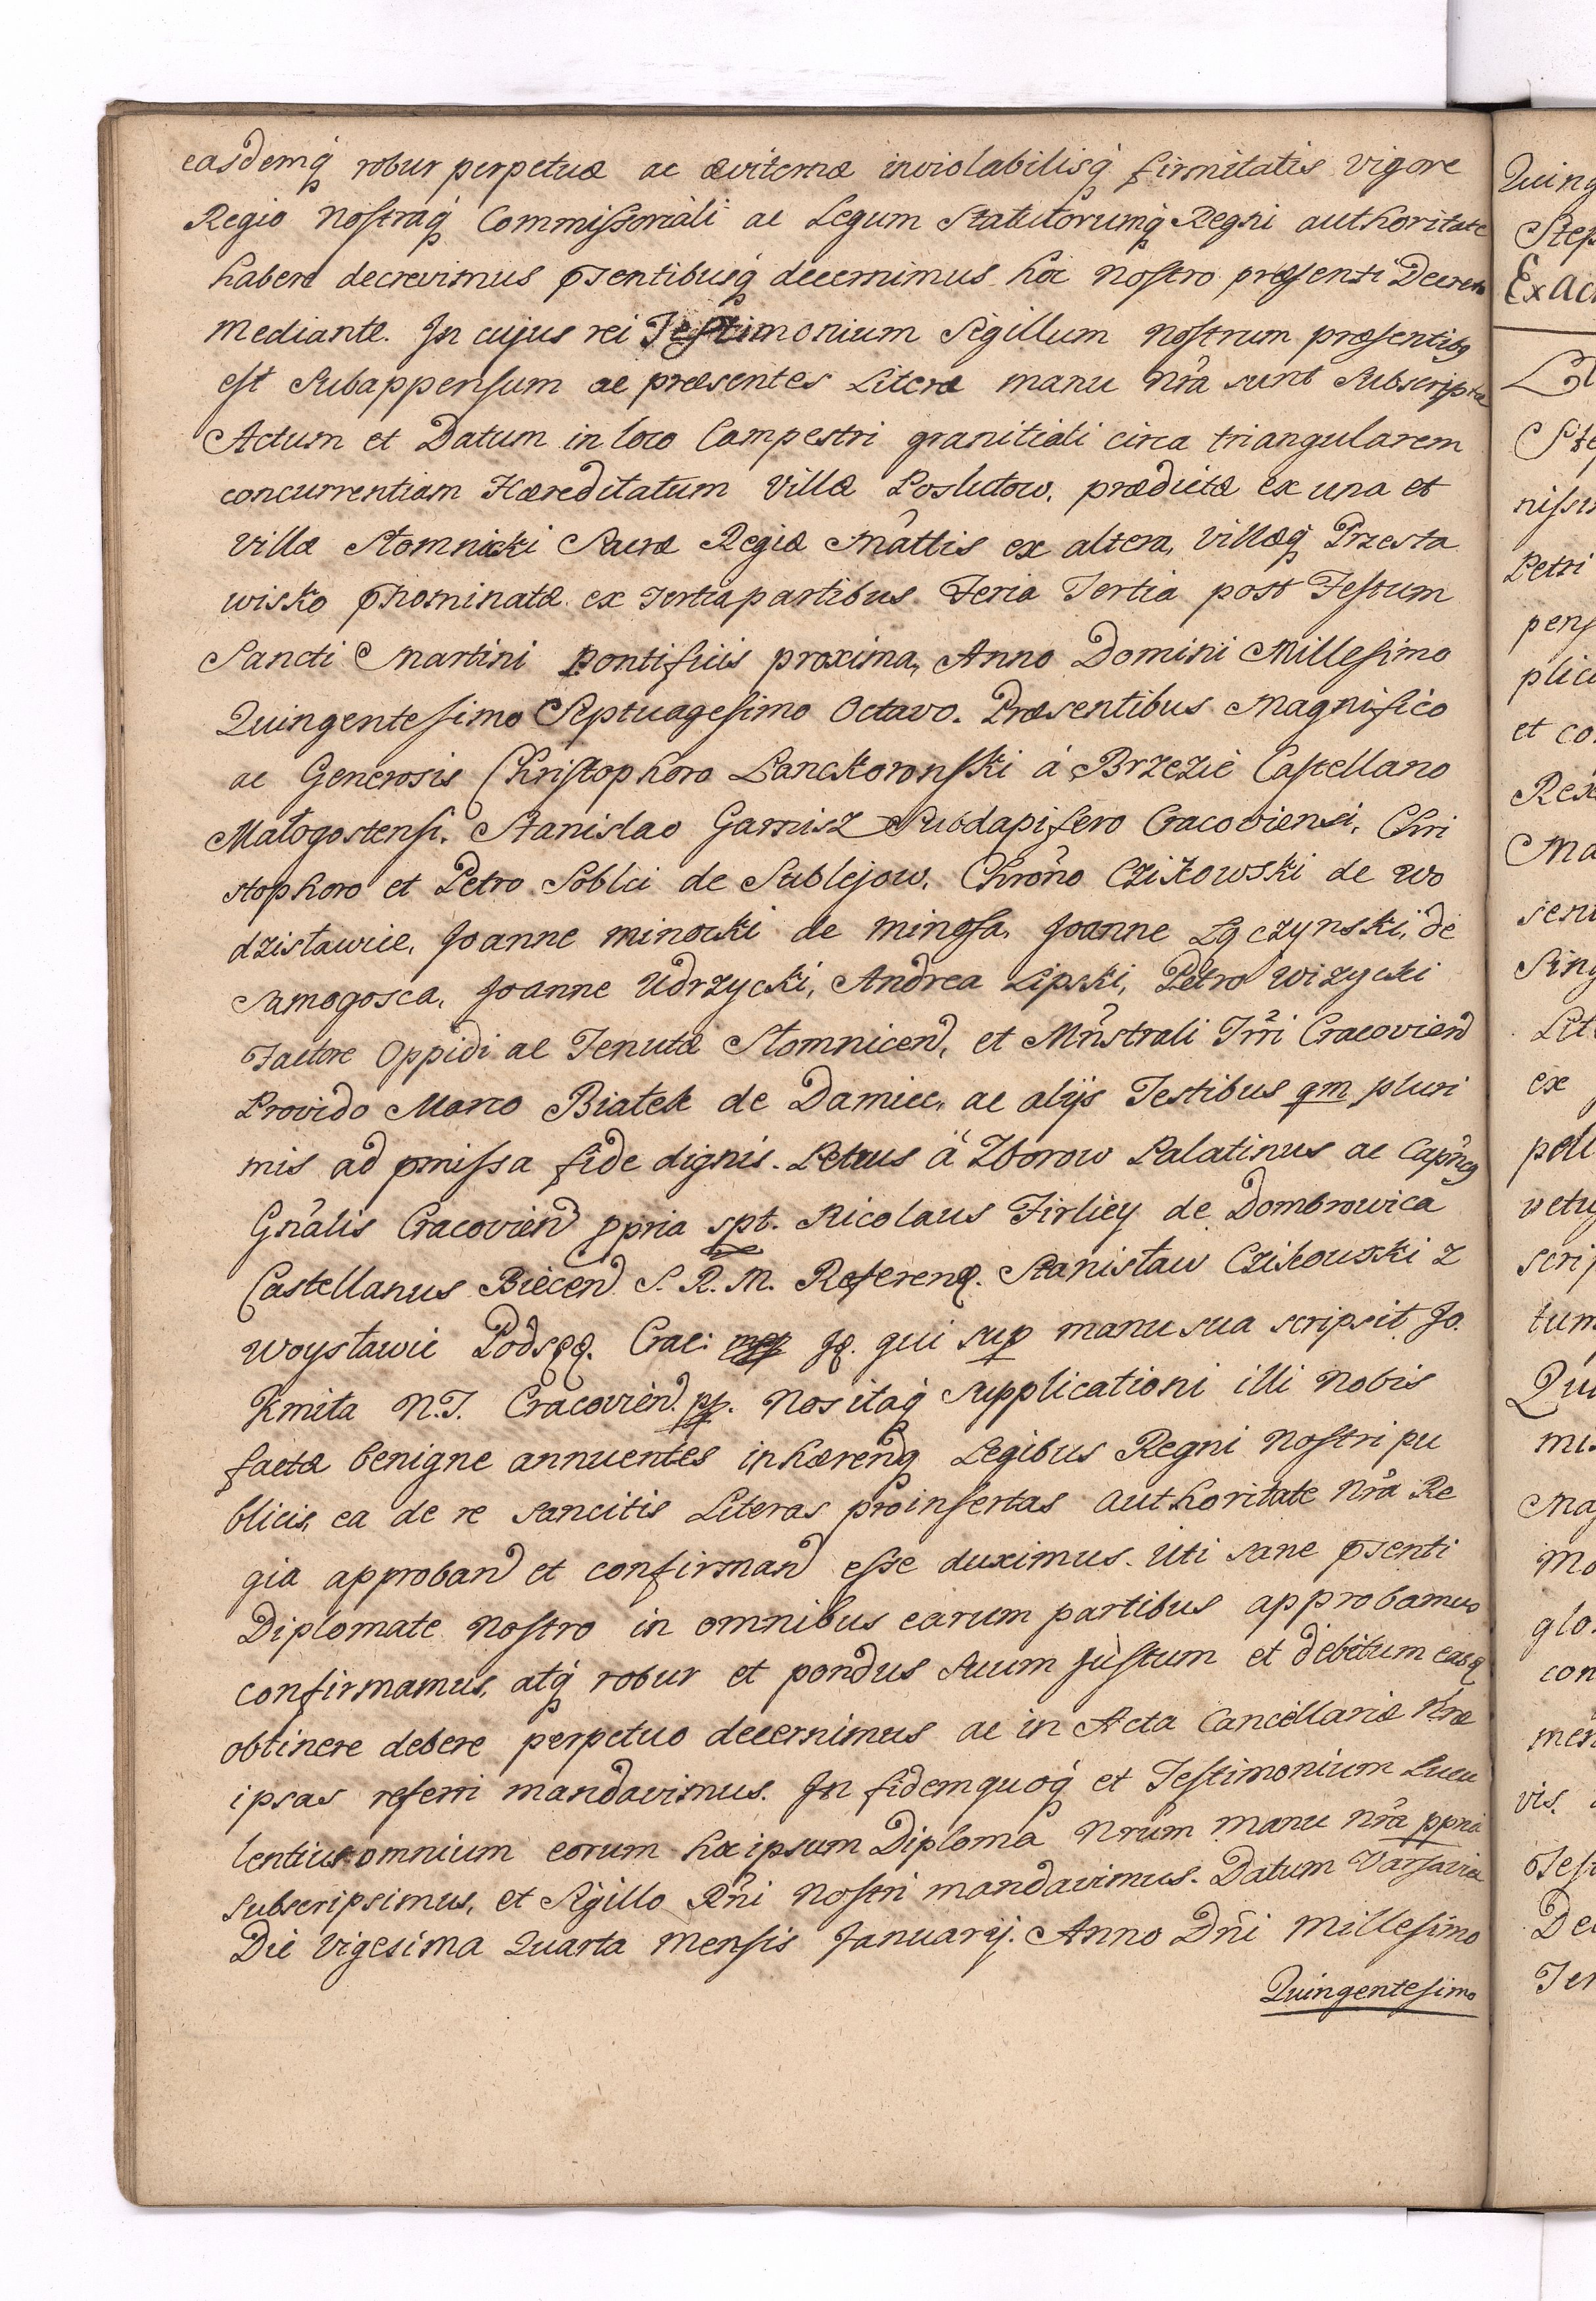 easdemq́ robur perpetuæ ac æviternæ inviolabilisq́ firmitatis vigore
Regio Nostraq́ Commissoriali ac Legum Statutorumq́ Regni authoritate
habere decrevimus pſentibusq́ decernimus hoc Nostro præsenti Decreto
Mediante. In cujus rei Testimonium Sigillum Nostrum præsentibq
est Subappensum ac præsentes Literæ manu Nrã sunt Subscriptæ
Actum et Datum in loco Campestri granitiali circa triangularem
concurrentiam Hæreditatum Villæ Poslutow, prædictæ ex una et
Villæ Stomnicki Sacræ Regiæ Mãttis ex altera, Villæq́ Przesta
wisko pnominatæ ex tertia partibus Feria Tertia post Festum
Sancti Martini Pontificis proxima, Anno Domini Millesimo
Quingentesimo Septuagesimo Octavo. Præsentibus Magnifico
ac Generosis Christophoro Lanckoronski á Brzezie Castellano
Małogostensi, Stanislao Garnisz Subdapifero Cracoviensi, Chri
stophoro et Petro Soblci de Sublejow, Chrono Cziżowski de Wo
dzisławice, Joanne Minocki de Minoſa, Joanne Łączynski, de
Samogosca, Joanne Udrzycki, Andrea Lipski, Petro Wizycki
Factore Oppidi ac Tenutæ Stomnicen, et Mñstrali Trri Cracovien
Provido Marco Białek de Damice, ac alijs Testibus qm pluri
mis ad pmissa fide dignis. Petrus á Zborow Palatinus ac Capñq
Gñalis Cracovien ppria spt. Nicolaus Firliey de Dombrowica
Castellanus Biecen S. R. M. Referenq. Stanisław Cziżowski z
Woysławic Podsęq. Crac: Jq. qui sup manu sua scripsit Jo.
Kmita N.T. Cracovien. pp. Nos itaq́ supplicationi illi Nobis
factæ benigne annuentes inhærenq Legibus Regni Nostri pu
blicis, ea de re sancitis Literas proinsertas authoritate Nrã Re
gia approban et confirman esse duximus. Uti sane pſenti
Diplomate Nostro in omnibus earum partibus approbamus
confirmamus, atq́ robur et pondus suum justum et debitum easq
obtinere debere perpetuo decernimus ac in Acta Cancellariæ Nræ
ipsas referri mandavimus. In fidem quoq́ et Testimonium Lucu
lentius omnium eorum hoc ipsum Diploma Nrũm manu Nrã ppria
subscripsimus, et Sigillo Rñi Nostri mandavimus. Datum Varsaviæ
Die Vigesima Quarta Mensis Januarij. Anno Dñi Millesimo
Quingentesimo